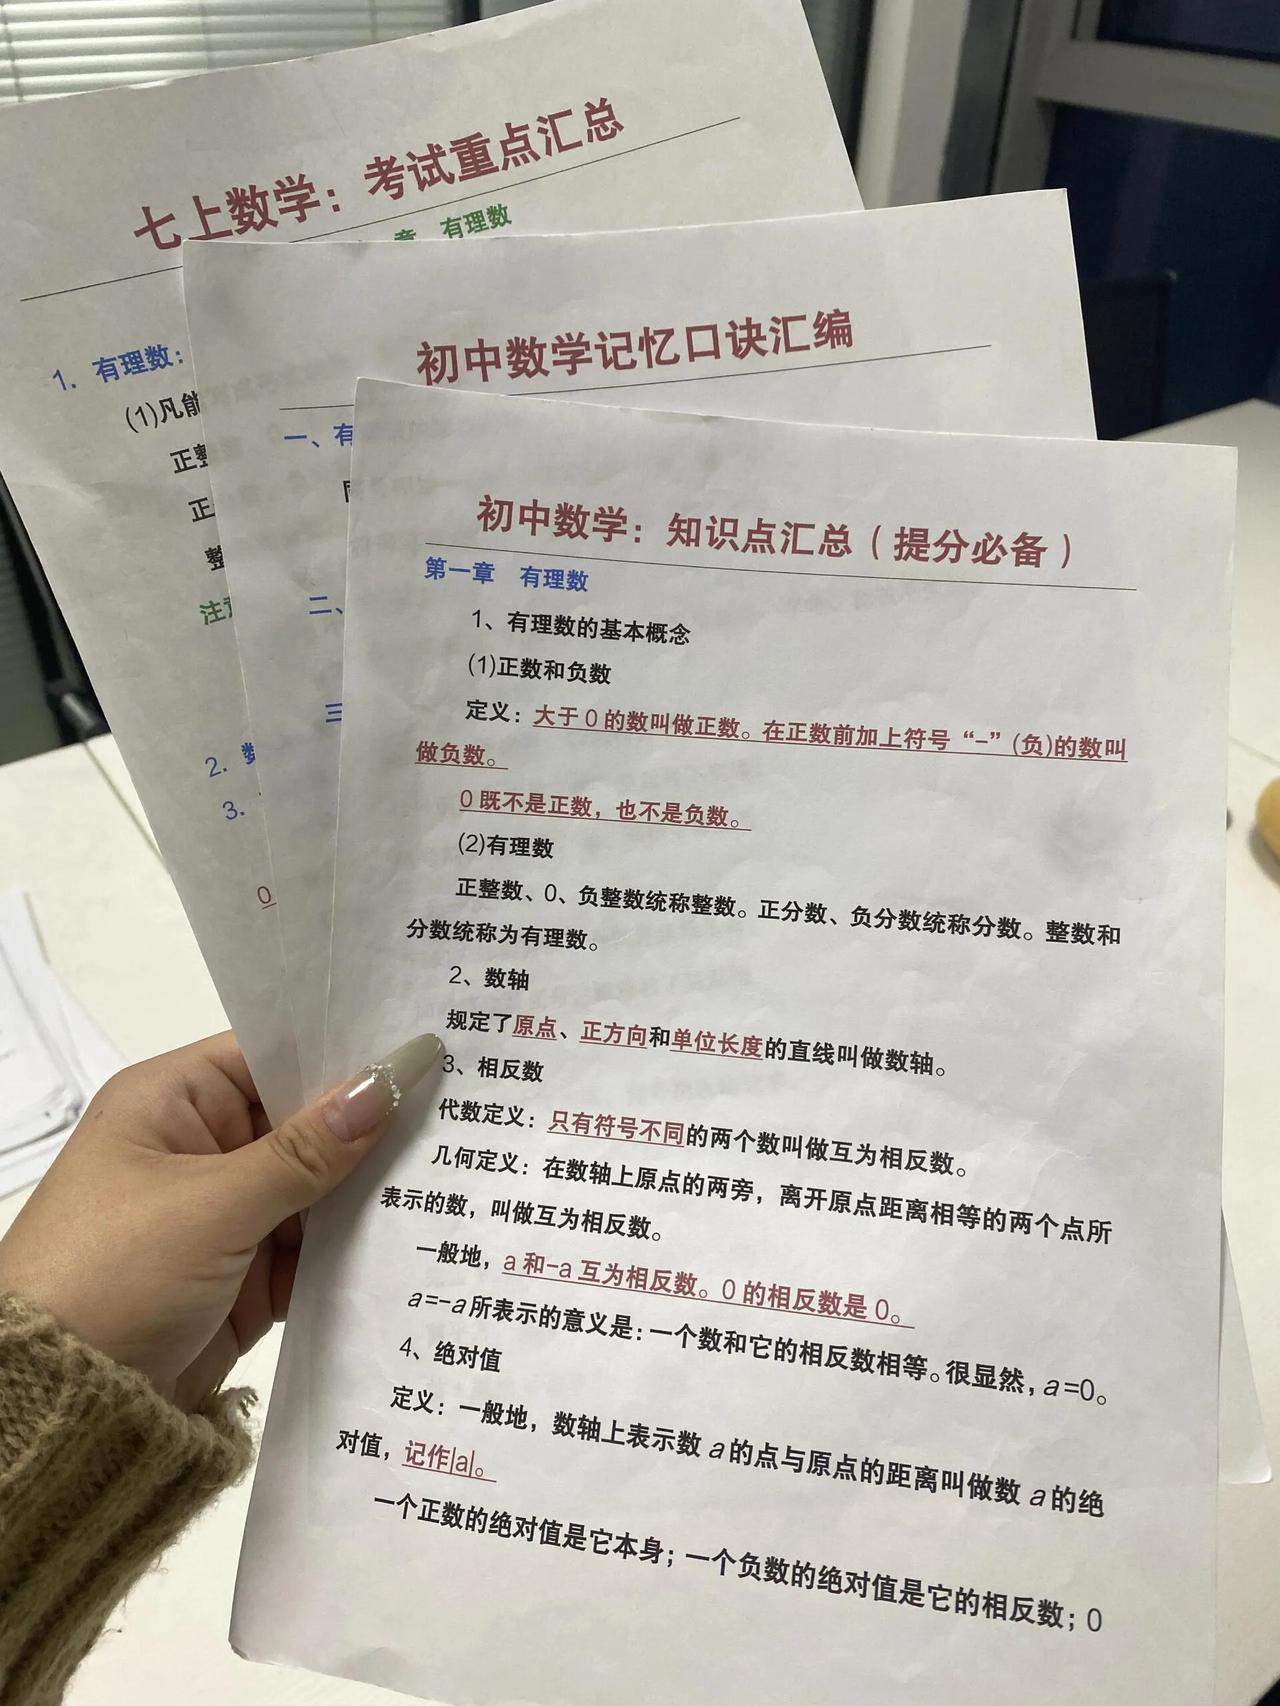 七上数学：考试重点汇总
章 有理数
1. 有理数：
(1)凡能
正整
正
整
注意
2. 数
3.
0
初中数学记忆口诀汇编
一、有
同
二、
三
初中数学：知识点汇总（提分必备）
第一章 有理数
1、有理数的基本概念
(1)正数和负数
定义：大于 0 的数叫做正数。在正数前加上符号“-”(负)的数叫
做负数。
0 既不是正数，也不是负数。
(2)有理数
正整数、0、负整数统称整数。正分数、负分数统称分数。整数和
分数统称为有理数。
2、数轴
规定了原点、正方向和单位长度的直线叫做数轴。
3、相反数
代数定义：只有符号不同的两个数叫做互为相反数。
几何定义：在数轴上原点的两旁，离开原点距离相等的两个点所
表示的数，叫做互为相反数。
一般地，a 和-a 互为相反数。0 的相反数是 0。
a=-a 所表示的意义是：一个数和它的相反数相等。很显然，a=0。
4、绝对值
定义：一般地，数轴上表示数 a 的点与原点的距离叫做数 a 的绝
对值，记作|a|。
一个正数的绝对值是它本身；一个负数的绝对值是它的相反数；0